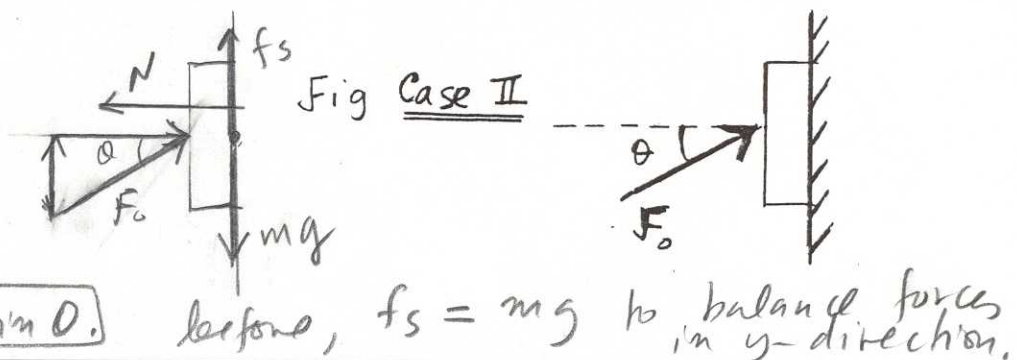 fs
N
Fig Case II
θ
F₀
mg
θ
F₀
in θ.) before, fs = mg to balance forces
in y-direction.